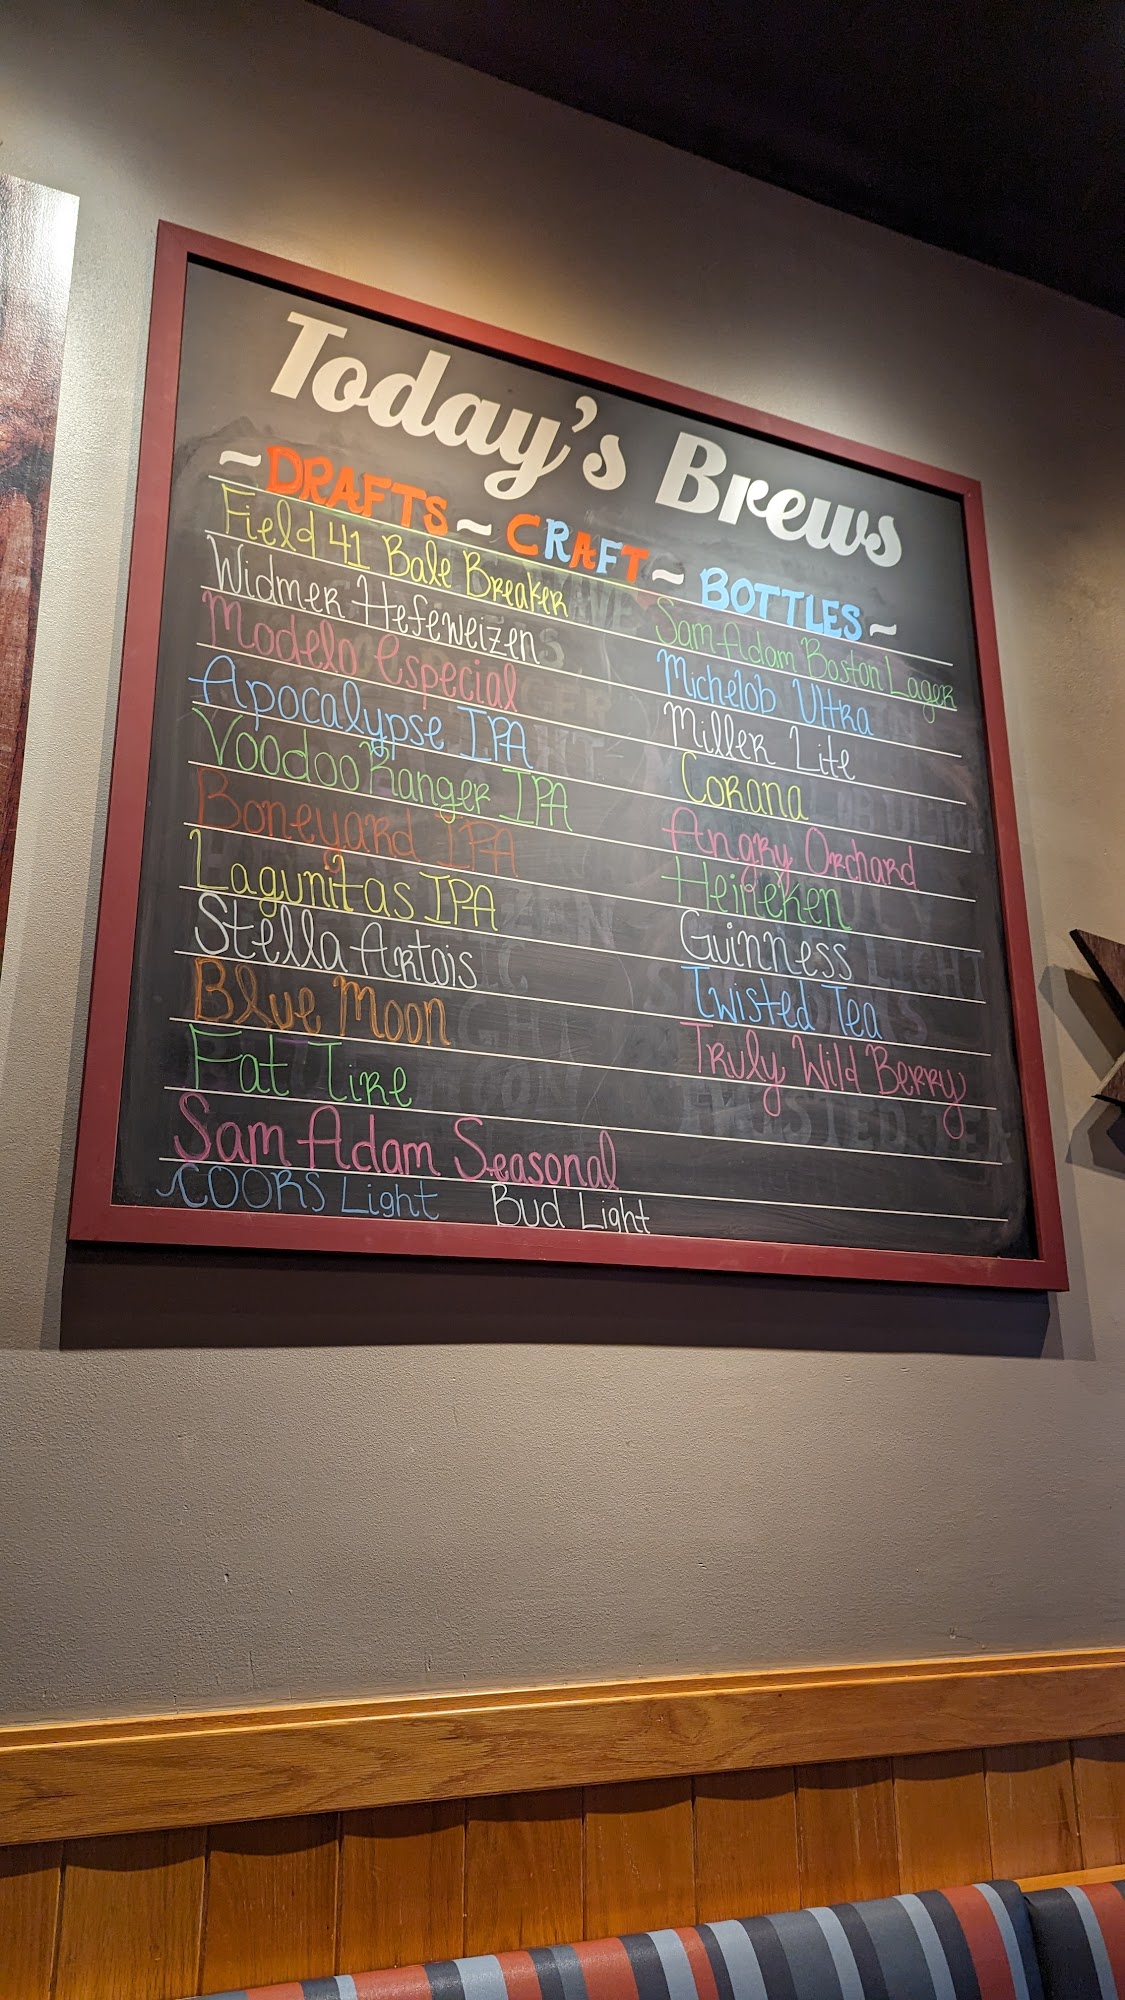 Today's Brews
~DRAFTS~ CRAFT~ BOTTLES~
Field 41 Bale Breaker
Widmer Hefeweizen
Modelo Especial
Apocalypse IPA
Voodoo Ranger IPA
Boneyard IPA
Lagunitas IPA
Stella Artois
Blue Moon
Fat Tire
Sam Adam Seasonal
COORS Light
Bud Light
Sam Adam Boston Lager
Michelob Ultra
Miller Lite
Corana
Angry Orchard
Heineken
Guinness
Twisted Tea
Truly Wild Berry